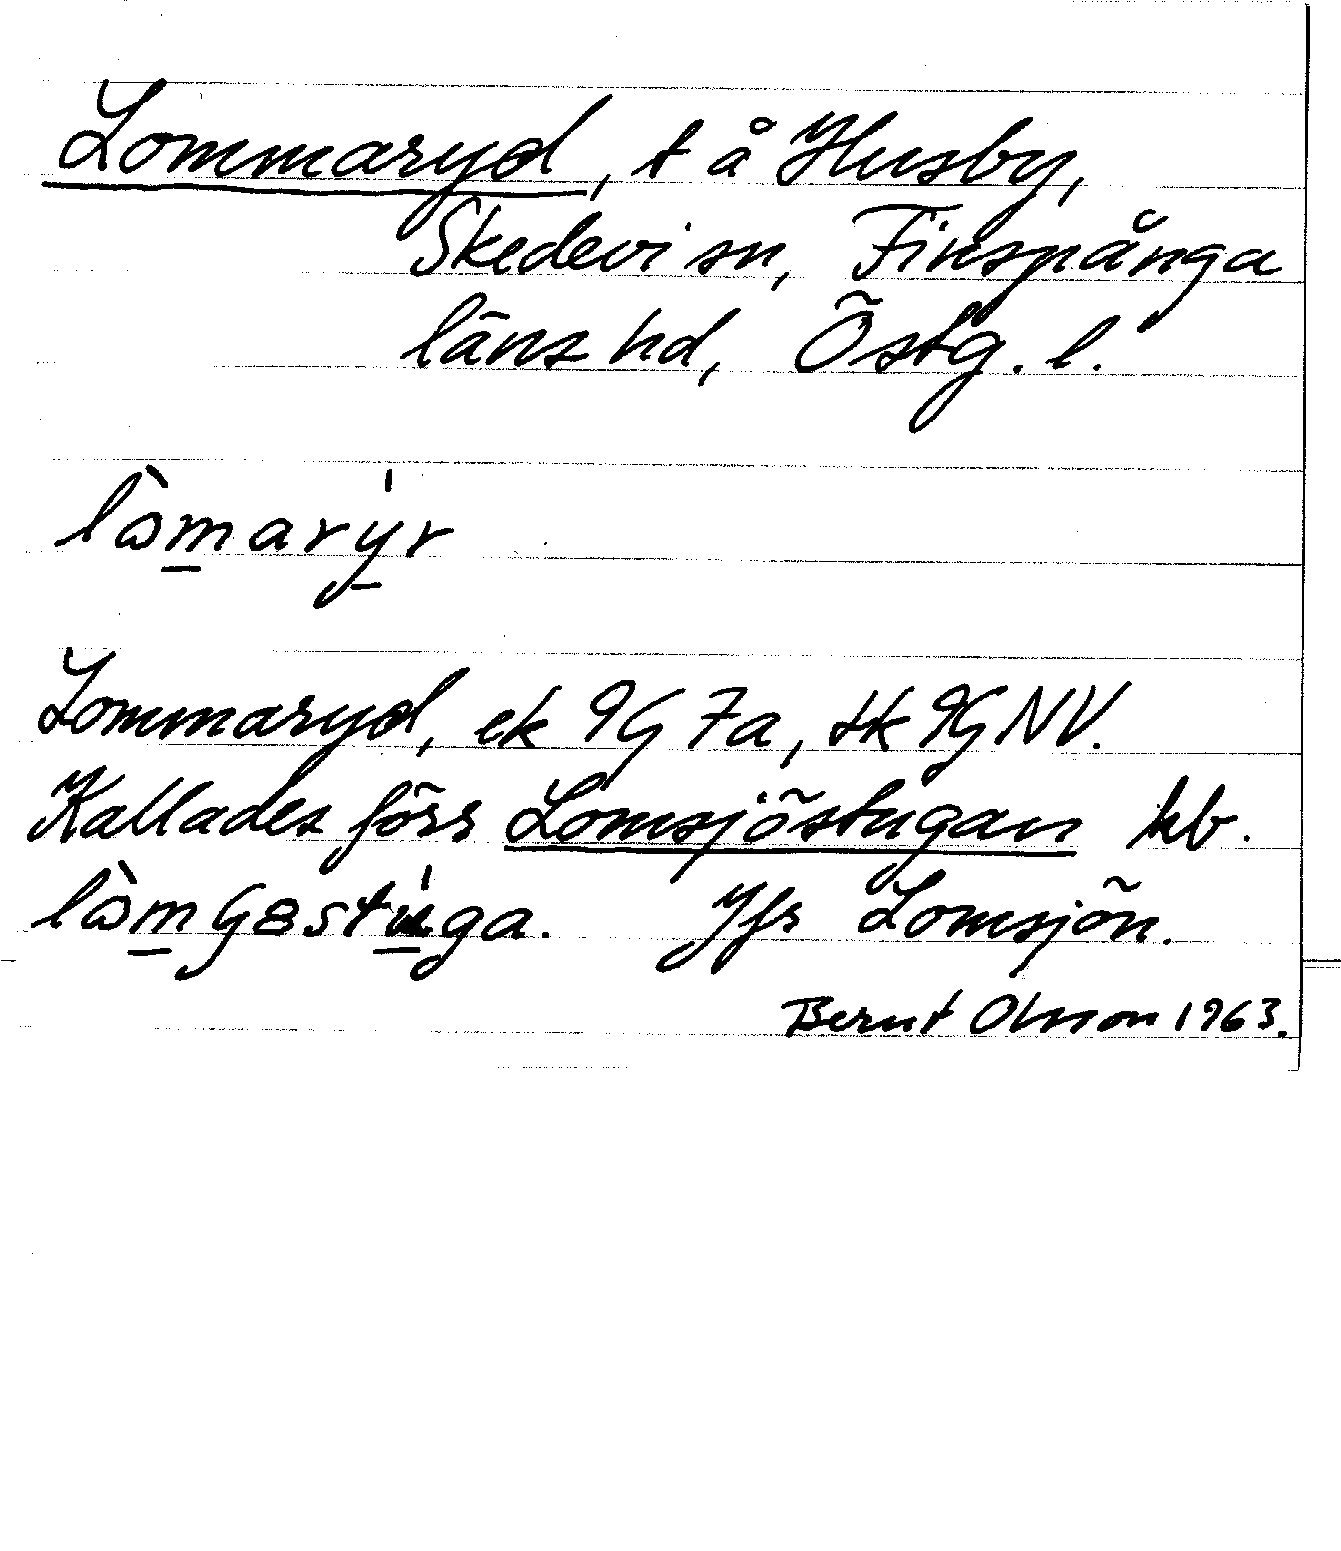 Lommaryd, t å Husby,
Skedevi sn, Finspånga
läns hd, Östg. l.
lɷ̀marýr
Lommaryd, ek 9G 7a, tk 9G NV.
Kallades förr Lomsjöstugan
lɷ̀mɢɞstúga. Jfr Lomsjön.
Bernt Olsson 1963.